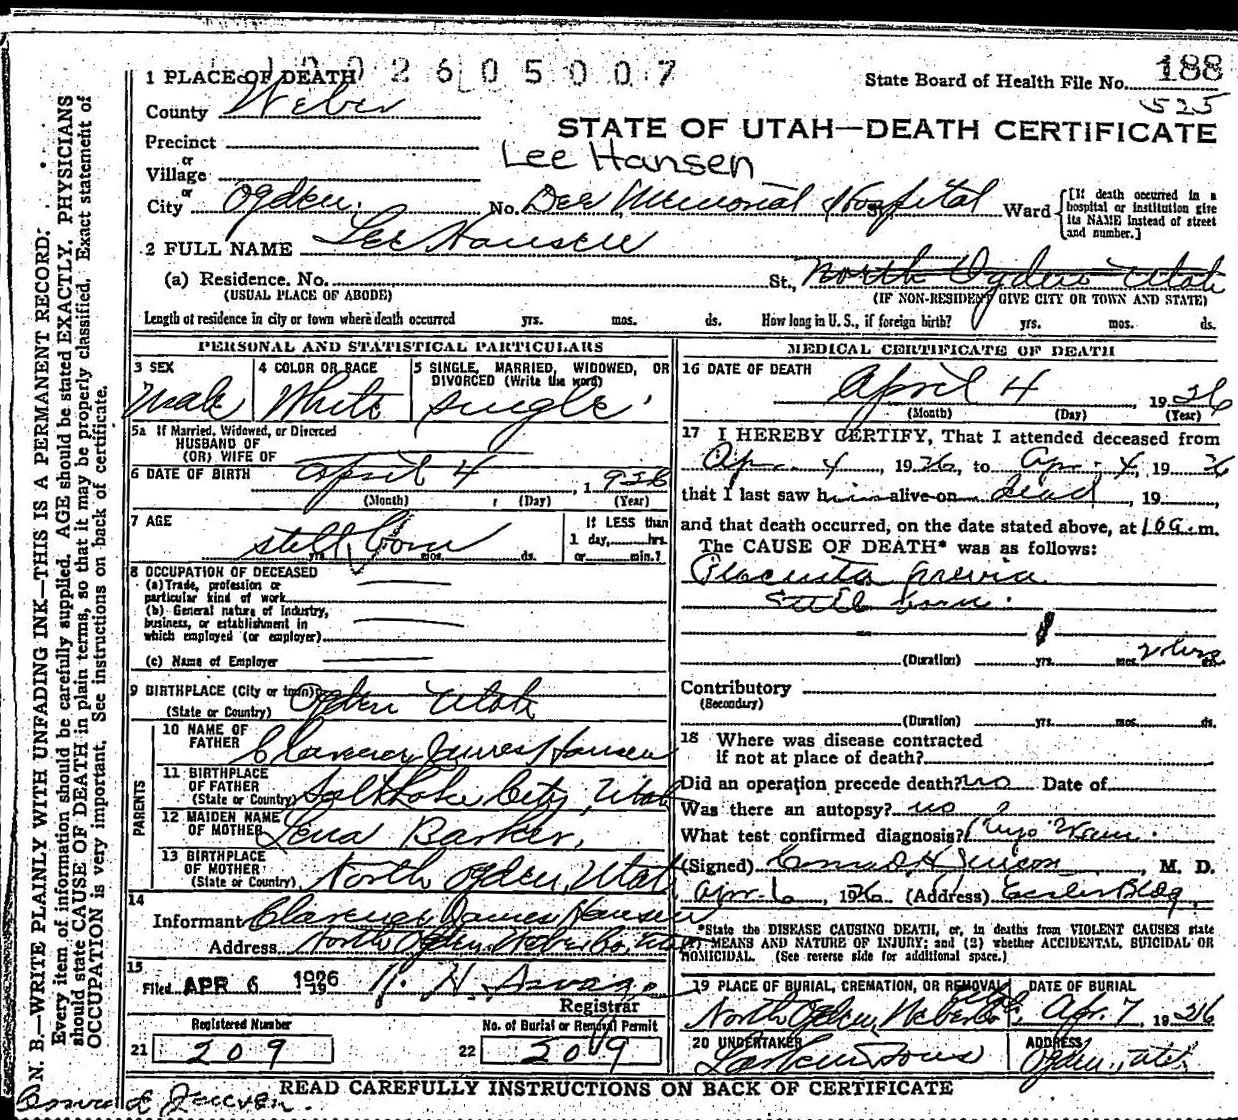 1 PLACE OF DEATH
2 6 0 5 0 0 7
State Board of Health File No. 188
525
County Weber
STATE OF UTAH—DEATH CERTIFICATE
Precinct
or
Village
Lee Hansen
or
City Ogden. No. Dee Memorial Hospital St. Ward
[If death occurred in a hospital or institution give its NAME instead of street and number.]
2 FULL NAME Lee Hansen
(a) Residence. No. St., North Ogden Utah
(USUAL PLACE OF ABODE) (IF NON-RESIDENT GIVE CITY OR TOWN AND STATE)
Length of residence in city or town where death occurred yrs. mos. ds. How long in U. S., if foreign birth? yrs. mos. ds.
PERSONAL AND STATISTICAL PARTICULARS
3 SEX Male
4 COLOR OR RACE White
5 SINGLE, MARRIED, WIDOWED, OR DIVORCED (Write the word) Single
5a If Married, Widowed, or Divorced
HUSBAND OF
(OR) WIFE OF
6 DATE OF BIRTH April 4, 1926
(Month) (Day) (Year)
7 AGE still born
yrs. mos. ds.
If LESS than
1 day, hrs.
or min.?
8 OCCUPATION OF DECEASED
(a) Trade, profession or
particular kind of work
(b) General nature of Industry,
business, or establishment in
which employed (or employer)
(c) Name of Employer
9 BIRTHPLACE (City or town) Ogden Utah
(State or Country)
PARENTS
10 NAME OF FATHER Clarence James Hansen
11 BIRTHPLACE OF FATHER (State or Country) Salt Lake City, Utah
12 MAIDEN NAME OF MOTHER Lena Barker,
13 BIRTHPLACE OF MOTHER (State or Country) North Ogden, Utah
14
Informant Clarence James Hansen
Address North Ogden, Weber Co., Utah
15
Filed APR 6 1926 19
Registrar
Registered Number
21 209
No. of Burial or Removal Permit
22 209
MEDICAL CERTIFICATE OF DEATH
16 DATE OF DEATH
April 4, 1926
(Month) (Day) (Year)
17 I HEREBY CERTIFY, That I attended deceased from
Apr. 4, 1926, to Apr. 4, 1926
that I last saw him alive on dead, 19
and that death occurred, on the date stated above, at m.
The CAUSE OF DEATH* was as follows:
Placenta previa
Still born.
(Duration) yrs. mos. ds.
Contributory
(Secondary)
(Duration) yrs. mos. ds.
18 Where was disease contracted
if not at place of death?
Did an operation precede death? no Date of
Was there an autopsy? no
What test confirmed diagnosis?
(Signed) Conrad H Jenson, M. D.
Apr. 6, 1926 (Address) Eccles Bldg.
*State the DISEASE CAUSING DEATH, or, in deaths from VIOLENT CAUSES state
(1) MEANS AND NATURE OF INJURY; and (2) whether ACCIDENTAL, SUICIDAL OR
HOMICIDAL. (See reverse side for additional space.)
19 PLACE OF BURIAL, CREMATION, OR REMOVAL
North Ogden, Weber Co.
DATE OF BURIAL
Apr. 7, 1926
20 UNDERTAKER
Larkin Sons
ADDRESS
Ogden, Utah
READ CAREFULLY INSTRUCTIONS ON BACK OF CERTIFICATE
N. B.—WRITE PLAINLY WITH UNFADING INK—THIS IS A PERMANENT RECORD.
Every item of information should be carefully supplied. AGE should be stated EXACTLY. PHYSICIANS
should state CAUSE OF DEATH in plain terms, so that it may be properly classified. Exact statement of
OCCUPATION is very important. See instructions on back of certificate.